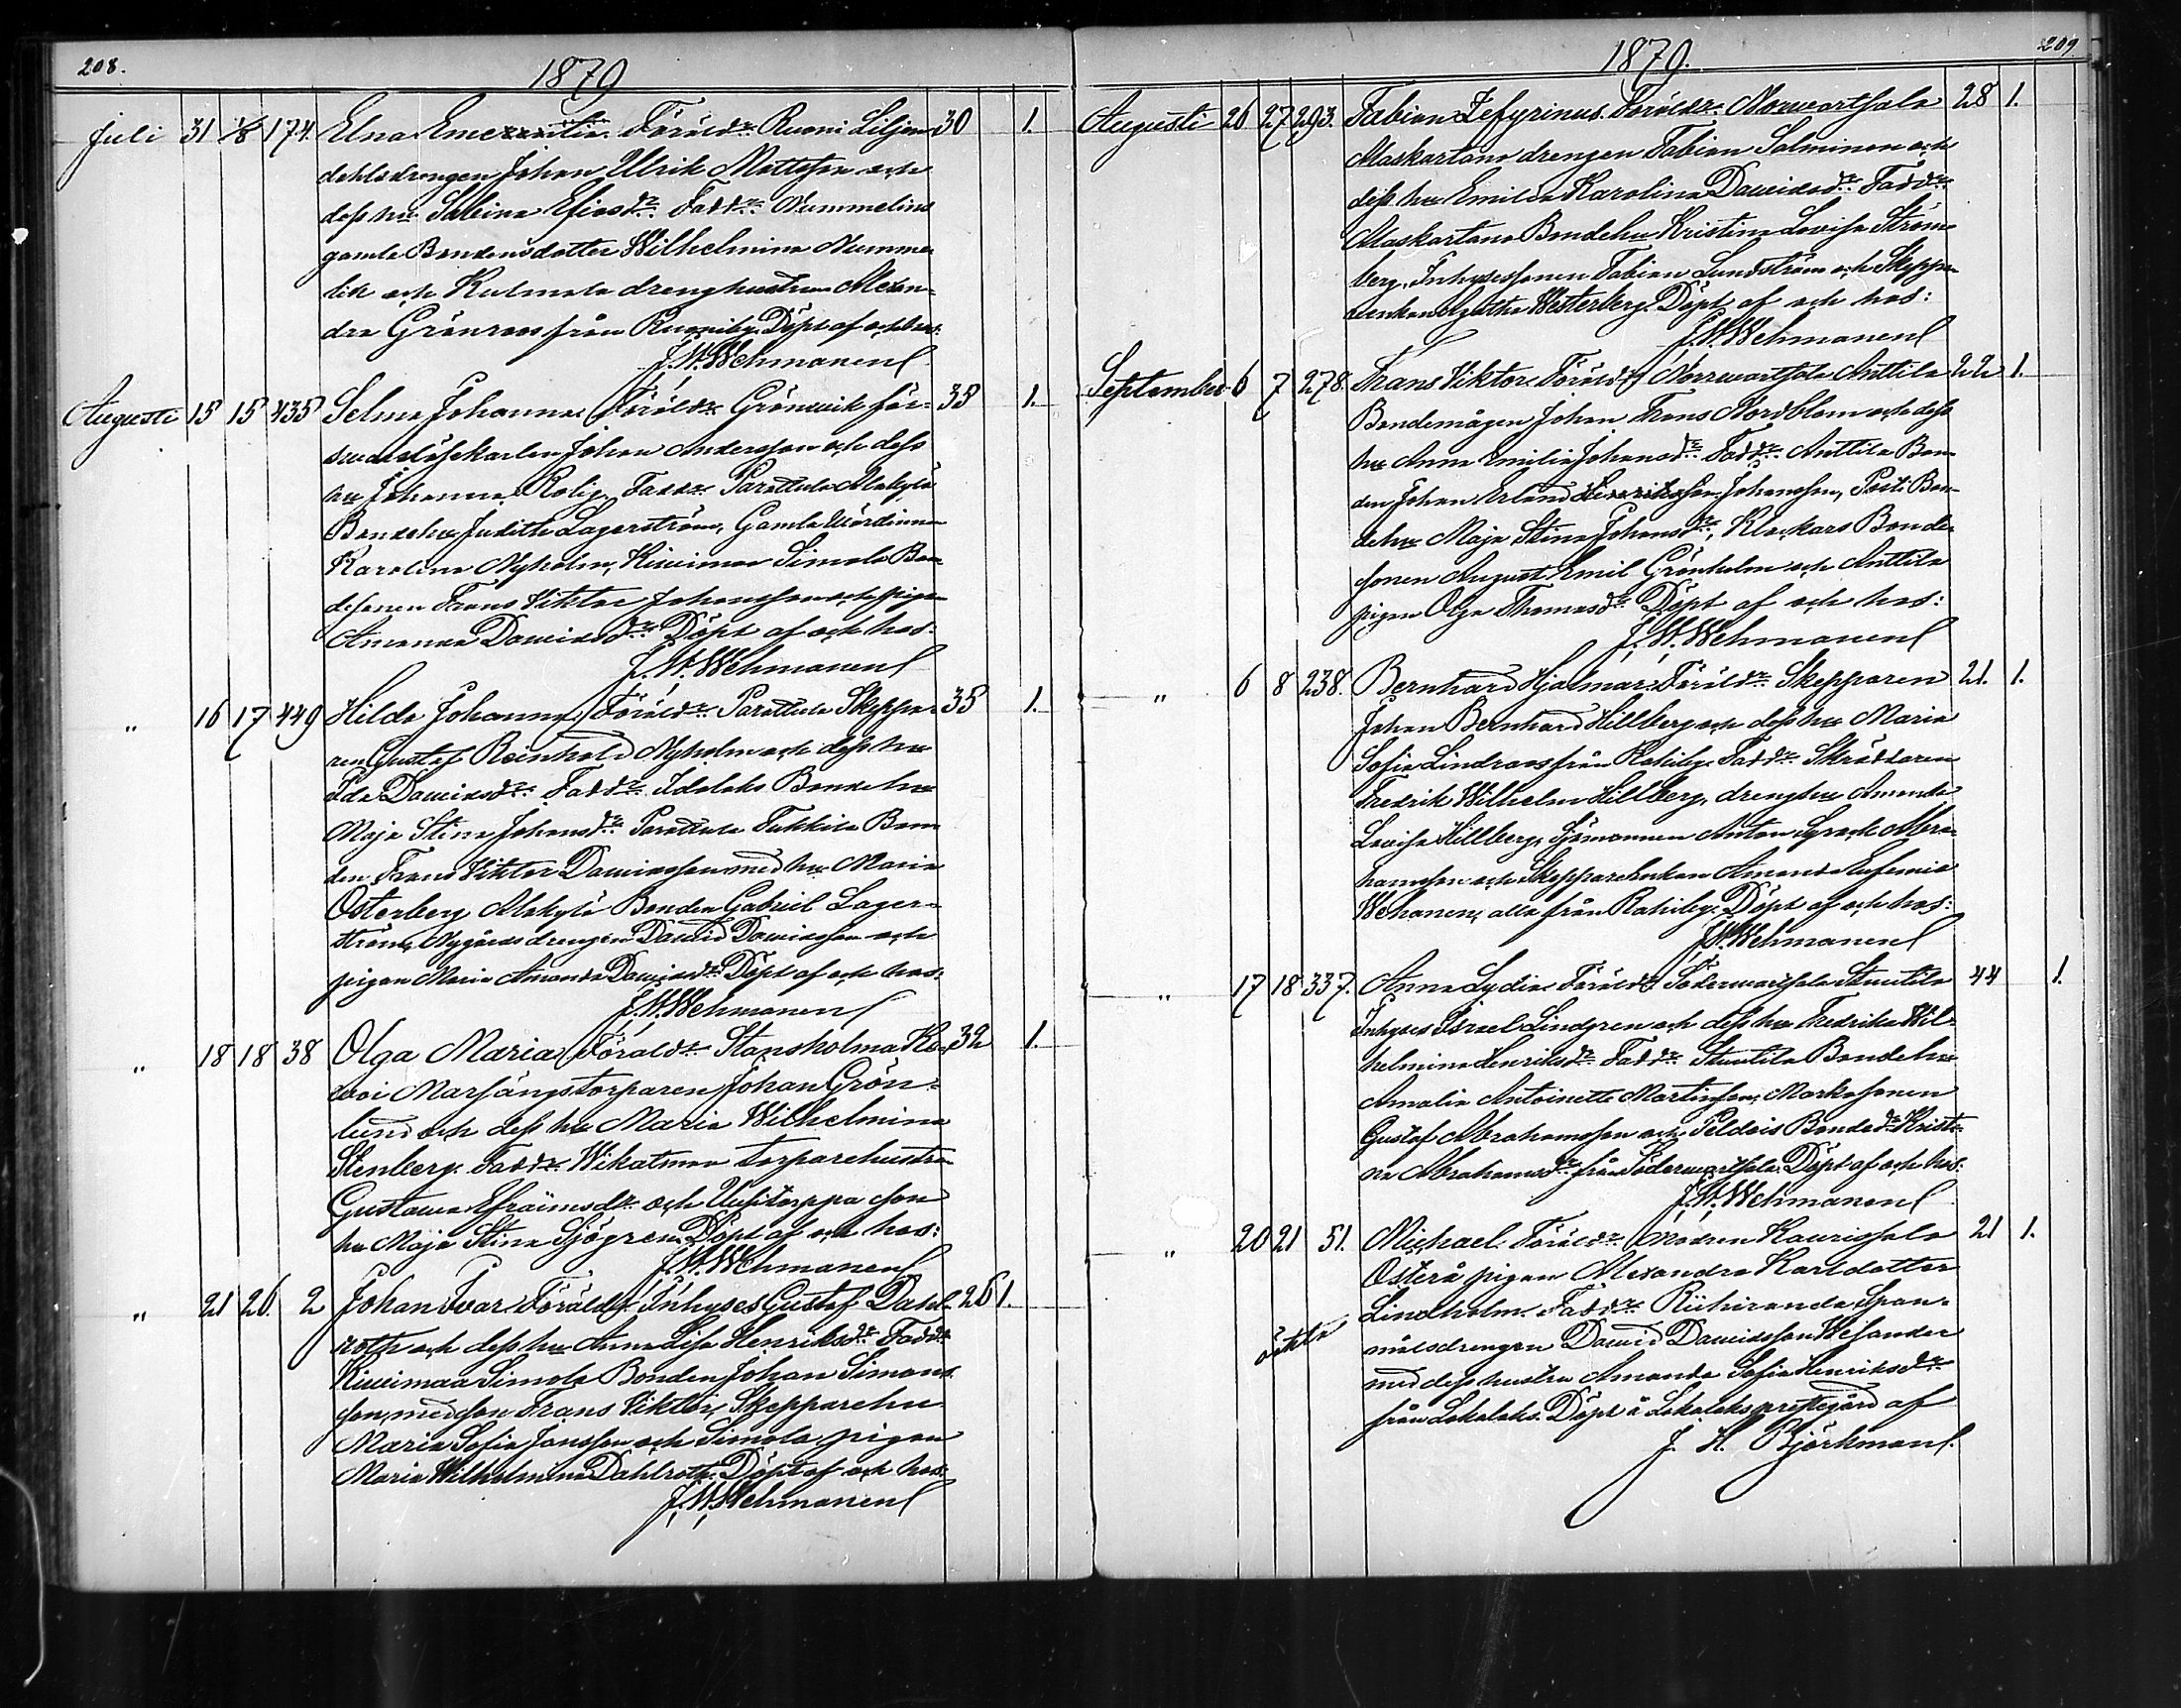 208.
1879
Juli 31 1/8 174. Elna Emerentia. Föräldr. Ruoni Liljen- 30 1.
dahlsdrengen Johan Ulrik Mattsson och
dess hu Sabina Efiasdr. Faddr. Nummelins
gamla Bondensdotter Wilhelmina Numme-
lin och Kulmala drenghustrun Alexan-
dra Grönroos från Ruoniby. Döpt af och hos:
J. W. Wehmanen
Augusti 15 15 435 Selma Johanna Föräldr. Grönvik för- 35 1.
Johan Andersson och dess
hu Johanna Rolig. Faddr. Parattula Alakylä
Bondehu Judith Lagerström, Gamla Värdinnan
Karolina Nyholm, Kiwimaa Simola Bon-
desonen Frans Viktor Johansson och pigan
Amanda Dawidsdr. Döpt af och hos:
J. W. Wehmanen
" 16 17 449 Hilda Johanna Föräldr. Parattula Skeppa- 35 1.
ren Gustaf Reinhold Nyholm och dess hu
Ida Dawidsdr. Faddr. Bondehu
Maja Stina Johansdr. Parattula Tukkila Bon-
den Frans Viktor Dawidsson med hu Maria
Österberg Alakylä Bonden Gabriel Lager-
ström, Nygårds drengen Dawid Dawidsson och
pigan Maria Amanda Dawidsdr. Döpt af och hos:
J. W. Wehmanen
" 18 18 38 Olga Maria Föräldr. Stansholma Ko- 32 1.
ivoi Marsängstorparen Johan Grön-
lund och dess hu Maria Wilhelmina
Stenberg. Faddr. Wikatmaa torparehustrun
Gustawa Efraimsdr. och Uusitorppa son
hu Maja Stina Sjögren. Döpt af och hos:
J. W. Wehmanen
" 21 26. 2 Johan Ivar Föräldr. Inhyses Gustaf Dahl- 26 1.
roth och dess hu Anna Lisa Henriksdr. Faddr.
Kiwimaa Simola Bonden Johan Simons-
son, med son Frans Viktor, Skepparehu
Maria Sofia Jansson och Simola pigan
Maria Wilhelmina Dahlroth. Döpt af och hos:
J. W. Wehmanen
1879.
209
Augusti 26 27 293. Fabian Zefyrinus. Föräldr. Norrvartsala 28 1.
Alaskartano drengen Fabian Salminen och
dess hu Emilia Karolina Dawidsdr. Faddr.
Alaskartano Bondehu Kristina Lovisa Ström-
berg, Inhysessonen Fabian Lundström och Skeppa-
enkan Agatha Westerberg. Döpt af och hos:
J. W. Wehmanen
September 6 7 278. Frans Viktor Föräldr. Norrvartsala Anttila 22 1.
Bondemågen Johan Frans Nordblom och dess
hu Anna Emilia Johansdr. Faddr. Anttila Bon-
den Johan Erland Johansson, Posti Bon-
dehu Maja Stina Johansdr., Klockars Bonde-
sonen August Emil Grönholm och Anttila
pigan Olga Thomasdr. Döpt af och hos:
J. W. Wehmanen
" 6 8 238. Bernhard Hjalmar. Föräldr. Skepparen 21. 1.
Johan Bernhard Hillberg och dess hu Maria
Sofia Lindroos från Rahiby. Faddr. Skräddaren
Fredrik Wilhelm Hillberg, drenghu Amanda
Lovisa Hillberg, Sjömannen Anton Abra-
hamsson och Skepparehukan Amanda Eufemia
Wehanen, alla från Rahiby. Döpt af och hos:
J. W. Wehmanen
" 17 18 337. Anna Lydia Föräldr. Södervartsala Stuutila 44 1.
Inhyses Israel Lindgren och dess hu Fredrika Wil-
helmina Henriksdr. Faddr. Stuutila Bondehu
Amalia Antoinette Martinsson, Markasonen
Gustaf Abrahamsson och Peldois Bondedr Kristi-
na Abrahamsdr. från Södervartsala. Döpt af och hos:
J. W. Wehmanen
" 20 21 51. Michael. Föräldr. Modren Kaurissalo 21 1.
oäkta
Österå pigan Alexandra Karlsdotter
Lindholm. Faddr. Riihiranda Span-
målsdrengen Dawid Dawidsson Wesander
med dess hustru Amanda Sofia Henriksdr.
från Lokalaks. Döpt å Lokalaks prestegård af
J. H. Björkman.